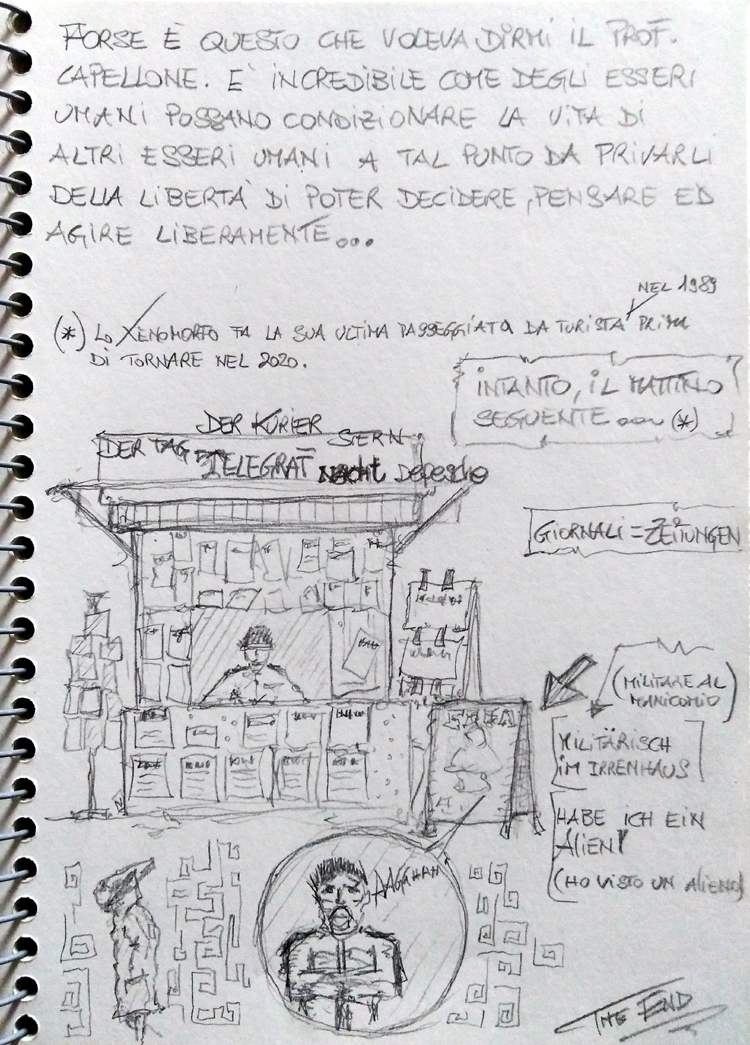 FORSE È QUESTO CHE VOLEVA DIRMI IL PROF.
CAPELLONE. E' INCREDIBILE COME DEGLI ESSERI
UMANI POSSANO CONDIZIONARE LA VITA DI
ALTRI ESSERI UMANI A TAL PUNTO DA PRIVARLI
DELLA LIBERTÀ DI POTER DECIDERE, PENSARE ED
AGIRE LIBERAMENTE...
NEL 1989
(*) LO XENOMORFO FA LA SUA ULTIMA PASSEGGIATA DA TURISTA PRIMA
DI TORNARE NEL 2020.
INTANTO, IL MATTINO
SEGUENTE ... (*)
DER KURIER
STERN
DER TAG
TELEGRAF Nacht Depesche
GIORNALI = ZEITUNGEN
(MILITARE AL
MANICOMIO)
MILITÄRISCH
IM IRRENHAUS
HABE ICH EIN
ALIEN!
(HO VISTO UN ALIENO)
AAGHHH
THE END